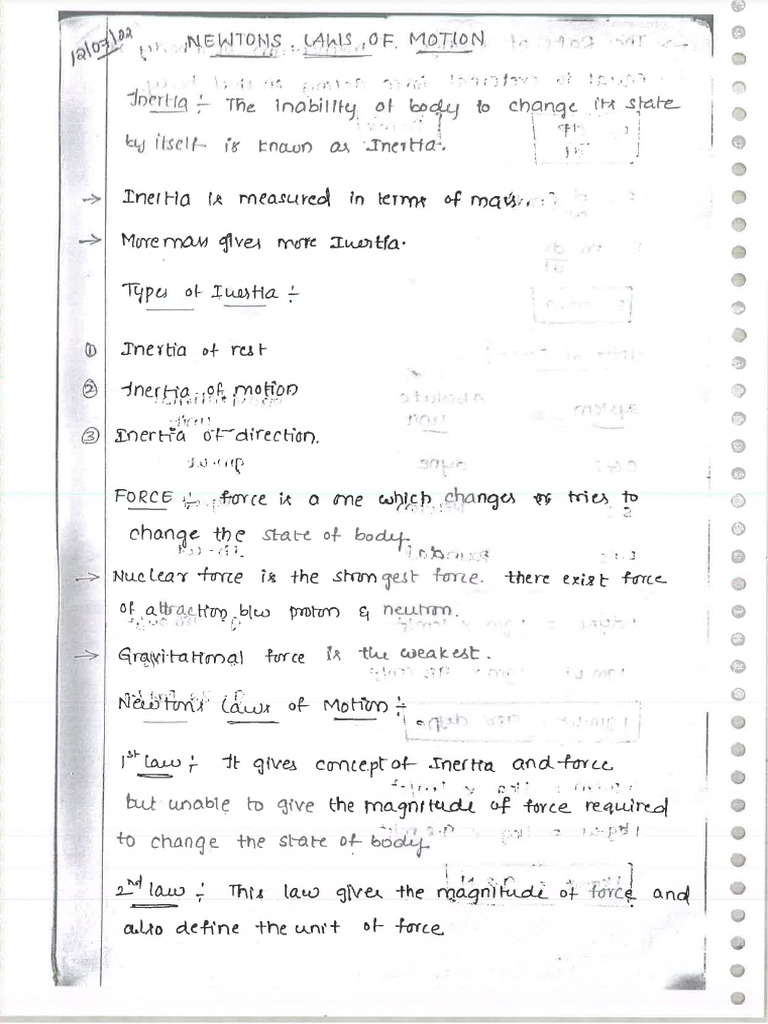 12/07/02 NEWTONS LAWS OF MOTION
Inertia :- The inability of body to change its state
by itself is known as Inertia.
→ Inertia is measured in terms of mass.
→ More mass gives more Inertia.
Types of Inertia :-
① Inertia of rest
② Inertia of motion
③ Inertia of direction.
FORCE :- force is a one which changes or tries to
change the state of body
→ Nuclear force is the strongest force. there exist force
of attraction b/w proton & neutron.
→ Gravitational force is the weakest.
Newton's Laws of Motion :-
1st law :- It gives concept of Inertia and force
but unable to give the magnitude of force required
to change the state of body
2nd law :- This law gives the magnitude of force and
also define the unit of force